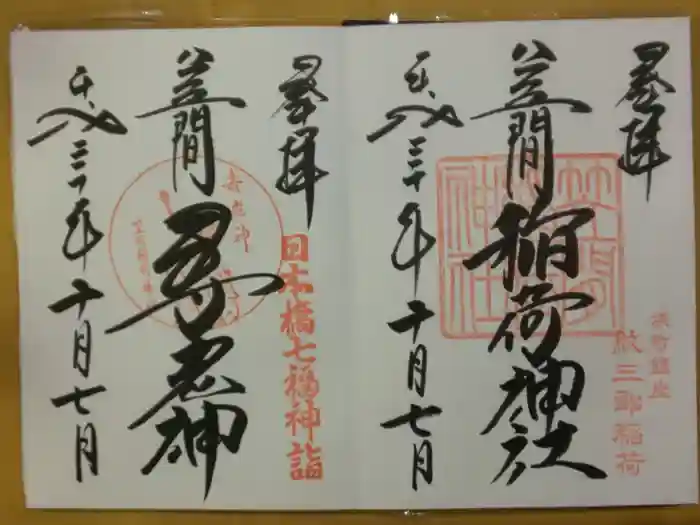 奉拝
紋三郎稲荷
笠間稲荷神社
平成三十年十月七日
奉拝
日本橋七福神詣
笠間
寿老神
平成三十年十月七日